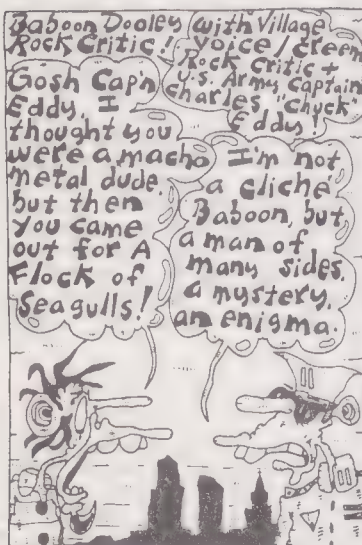 Baboon Dooley
Rock Critic!
(with Village
Voice/Creem
Rock Critic +
U.S. Army Captain
Charles "Chuck"
Eddy!
Gosh Cap'n
Eddy, I
thought you
were a macho
metal dude,
but then
you came
out for A
Flock of
Seagulls!
I'm not
a cliché
Baboon, but
a man of
many sides,
a mystery,
an enigma.